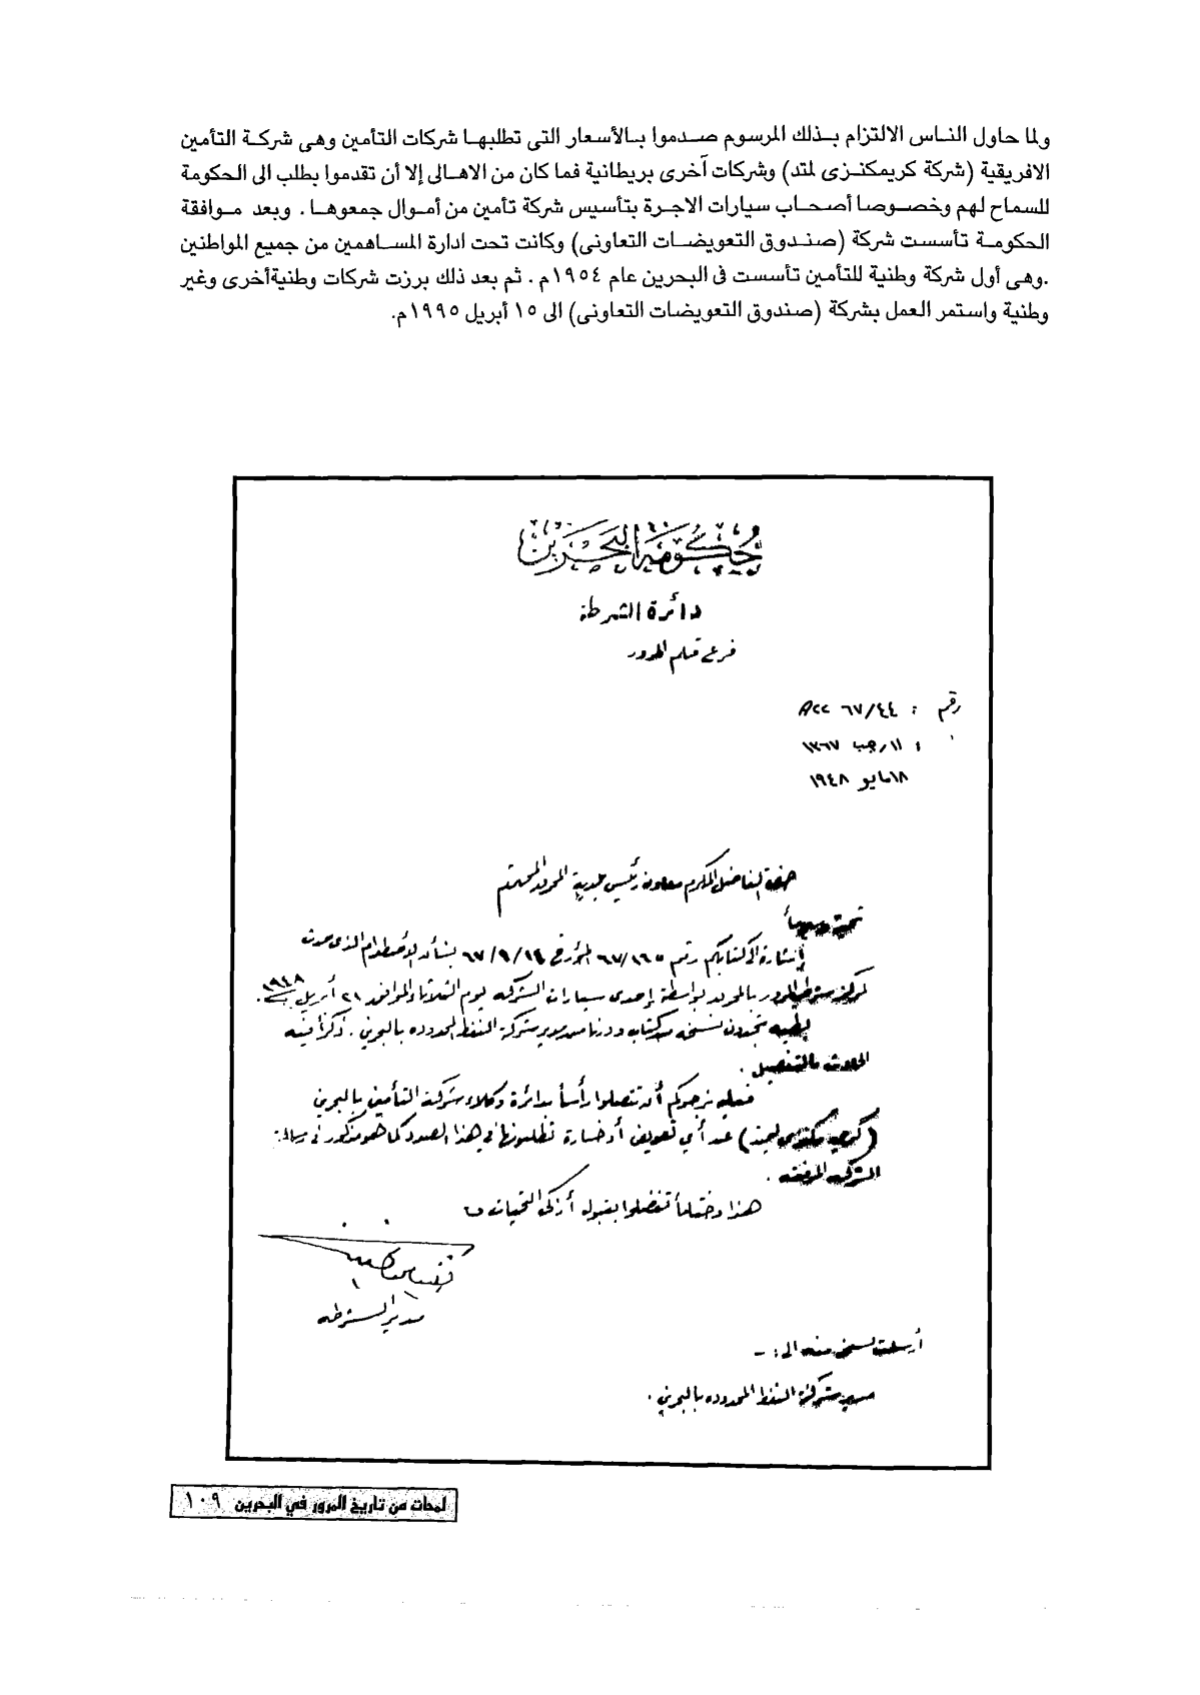 ولما حاول الناس الالتزام بذلك المرسوم صدموا بالأسعار التى تطلبها شركات التأمين وهى شركة التأمين
الافريقية (شركة كريمكنزى لمتد) وشركات آخرى بريطانية فما كان من الاهالى إلا أن تقدموا بطلب الى الحكومة
للسماح لهم وخصوصا أصحاب سيارات الاجرة بتأسيس شركة تأمين من أموال جمعوها . وبعد موافقة
الحكومة تأسست شركة (صندوق التعويضات التعاونى) وكانت تحت ادارة المساهمين من جميع المواطنين
.وهى أول شركة وطنية للتأمين تأسست فى البحرين عام ١٩٥٤م . ثم بعد ذلك برزت شركات وطنيةأخرى وغير
وطنية واستمر العمل بشركة (صندوق التعويضات التعاونى) الى ١٥ أبريل ١٩٩٥م.
حكومة البحرين
دائرة الشرطة
فرع قلم المرور
رقم : ٦٧/٤٤ Acc
: ١١ رجب ١٣٦٧
١٨ مايو ١٩٤٨
حضرة الفاضل المكرم معاون رئيس بلدية المحرق المحترم
تحية
إشارة الى كتابكم رقم المؤرخ بشأن الأصطدام الذى حدث
لمركز بالمحرق بواسطة إحدى سيارات الشركة يوم الثلاثاء الموافق أبريل ١٩٤٨ .
بطيه تجدون نسخة من كتاب وردنا من مدير شركة النفط المحدوده بالبحرين . ذكرا فيه
الحادث بالتفصيل .
فعليه نرجوكم أن تتصلوا رأساً بدائرة وكلاء شركة التأمين بالبحرين
(كري مكنزى ليمتد) عن أي تعويض أو خسارة تطلبونها في هذا الصدد كما هو مذكور في رسالة
الشركه المرفقه .
هذا وختاماً تفضلوا بقبول أزكى التحيات
مدير الشرطه
أرسلت نسخة منه الى : -
مدير شركة النفط المحدوده بالبحرين .
لمحات من تاريخ المرور في البحرين ١٠٩